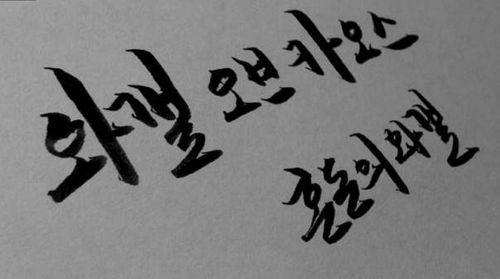 와갤 오브 카오스
혼돈의 와갤